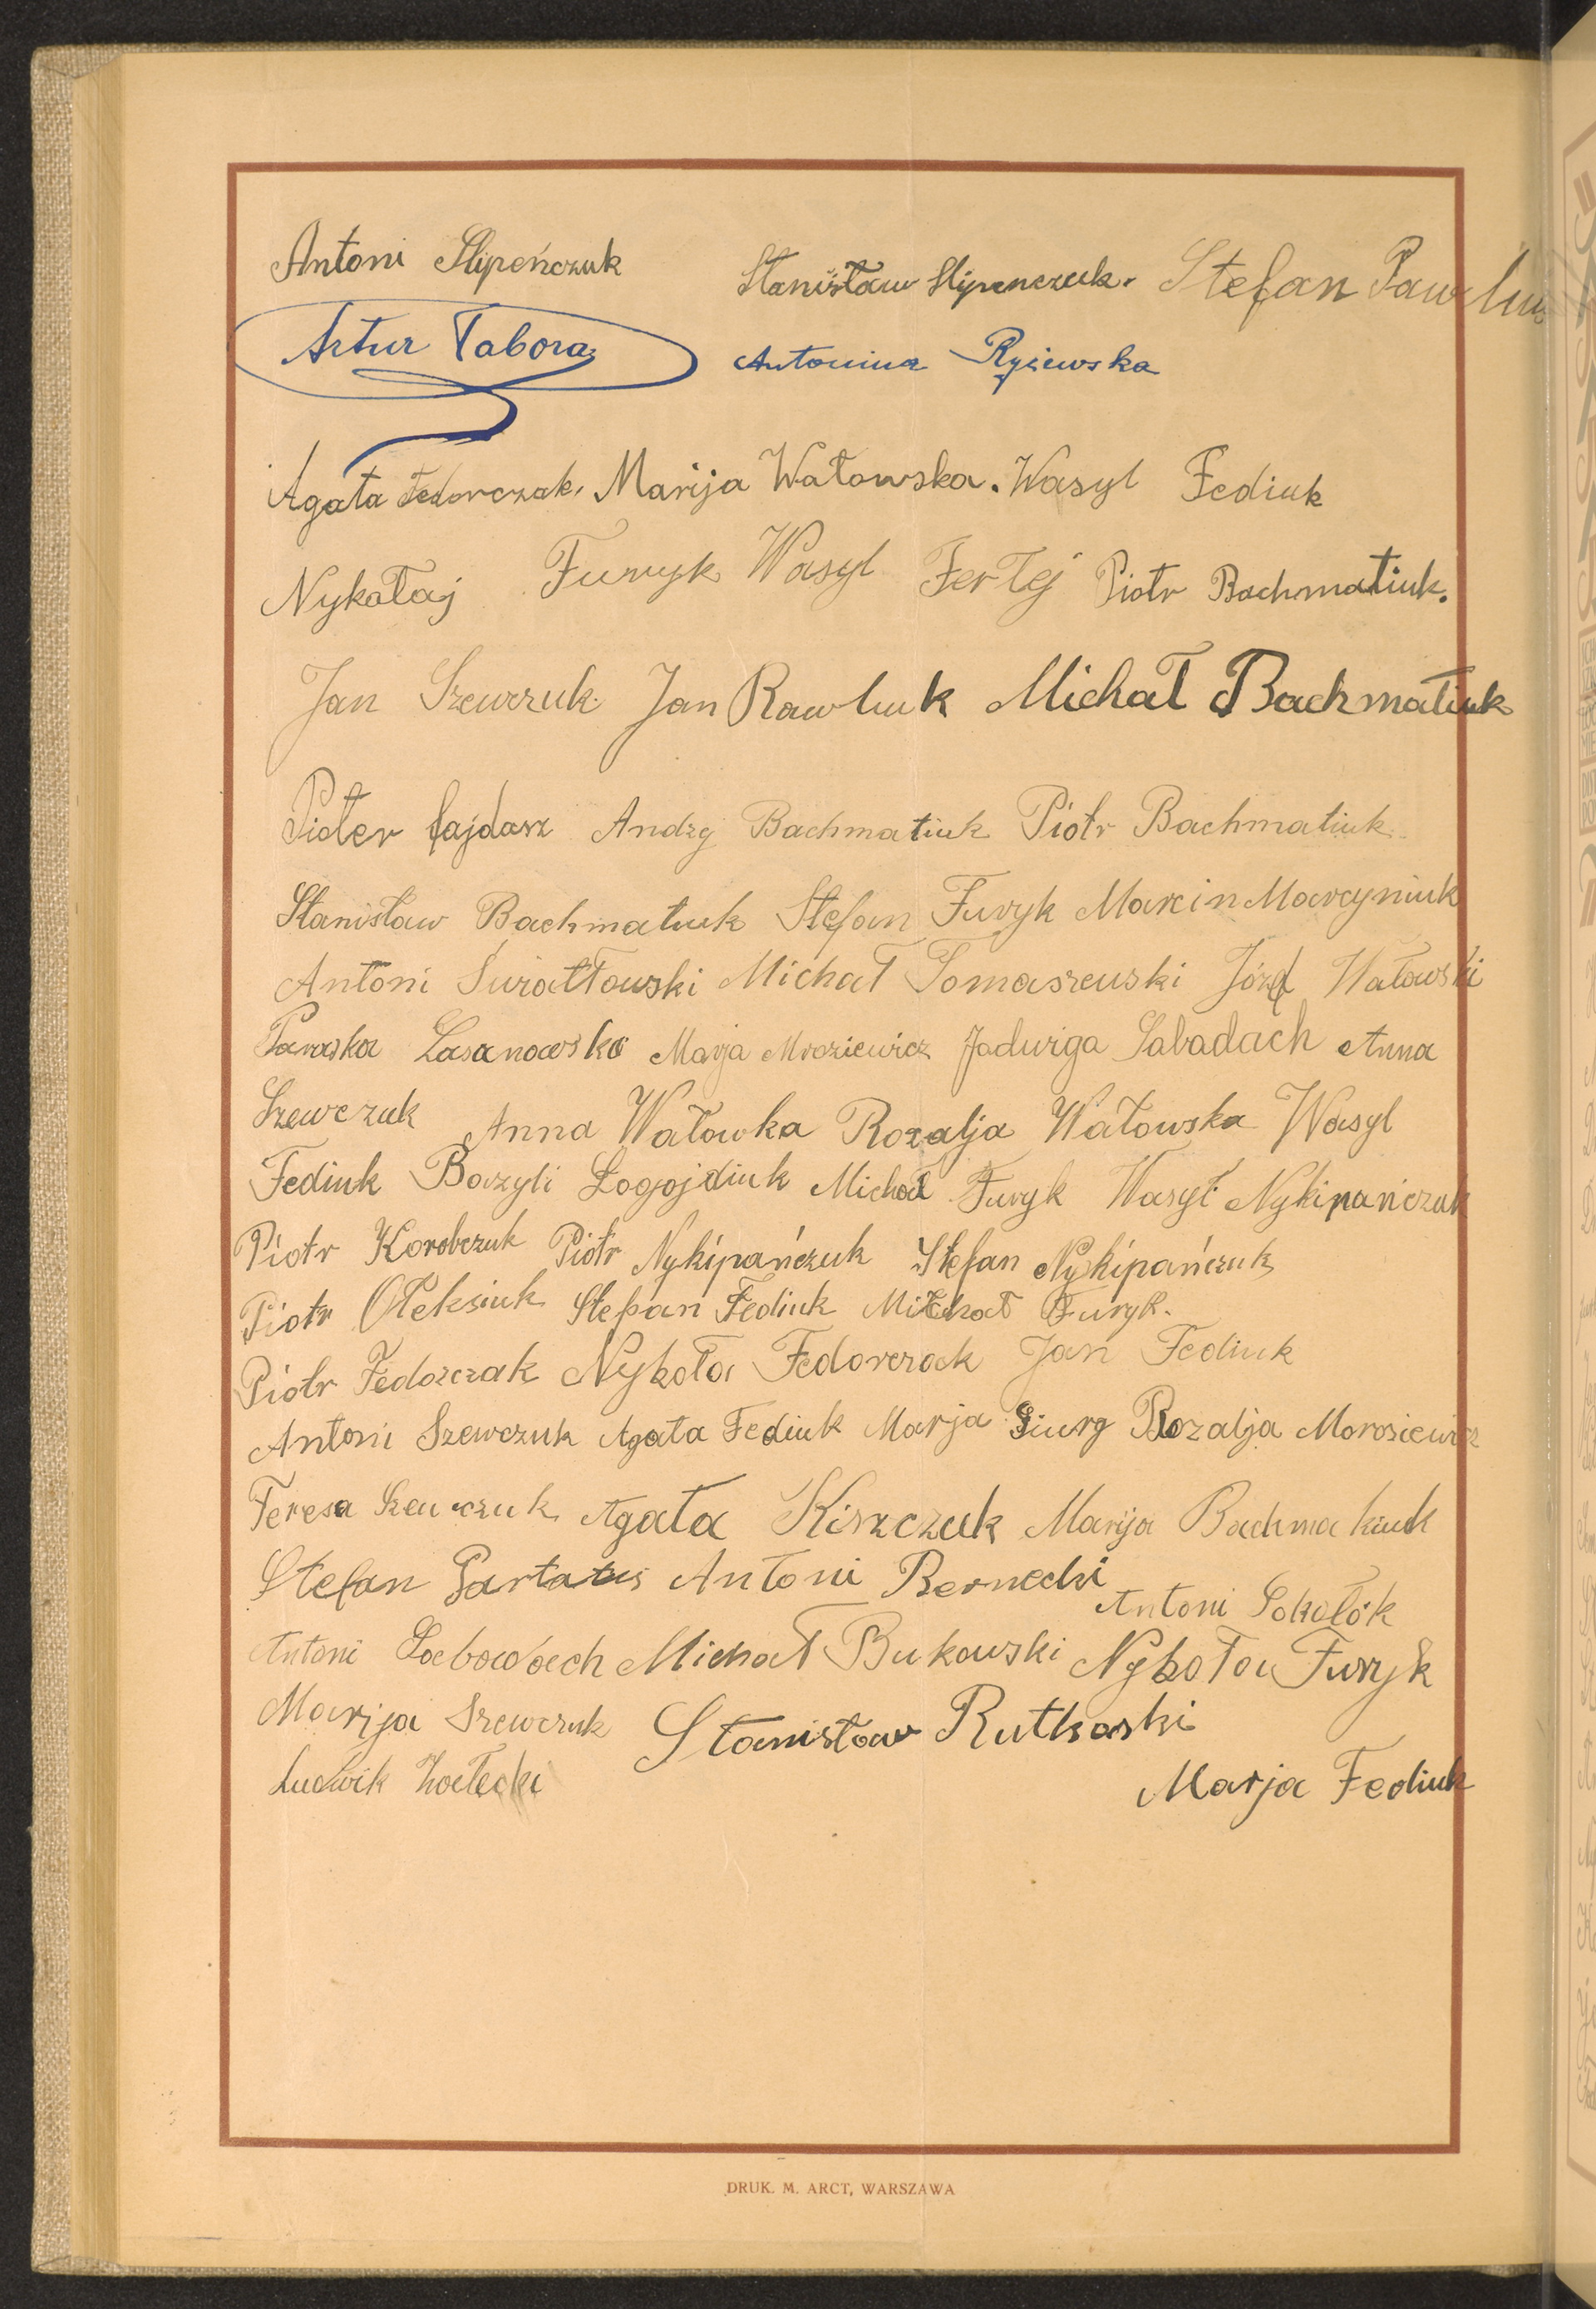 Antoni Slipeńczuk Stanisław Slipenczuk. Stefan
Artur Tabora Antonina Ryżewska
Agata Fedorczak, Marija Watowska. Wasyl Fediuk
Nykołaj Furryk Wasyl Fertej Piotr Bachmatiuk.
Jan Szewczuk Jan Rawluk Michał Bachmatiuk
Pioter fajdasz Andrzj Bachmatiuk Piotr Bachmatiuk
Stanisław Bachmatiuk Stefan Furyk Marcin Marcyniuk
Antoni Światłowski Michał Tomaszeuski Józef Watowski
Paraska Lasanowska Marja Mroziewicz Jadwiga Sabadach Anna
Szewczuk Anna Watowka Rozalja Watowska Wasyl
Fediuk Bazyli Łogojdiuk Michał Furyk Wasył Nykipańczuk
Piotr Korobczuk Piotr Nykipańczuk Stefan Nykipańczuk
Piotr Ołeksiuk Stefan Fediuk Michał Furyk.
Piotr Fedorczak Nykoła Fedorczak Jan Fediuk
Antoni Szewczuk Agata Fediuk Marja Giurg Rozalja Morosiewicz
Teresa Szewczuk Agata Kiszczuk Marija Bachmakiuk
Stefan Antoni Bernecki
Antoni Sokołók
Antoni Michał Bukowski Nykoła Furyk
Marija Szewczuk Stanisław Rutkoski
Ludwik
Marja Fediuk
DRUK. M. ARCT, WARSZAWA